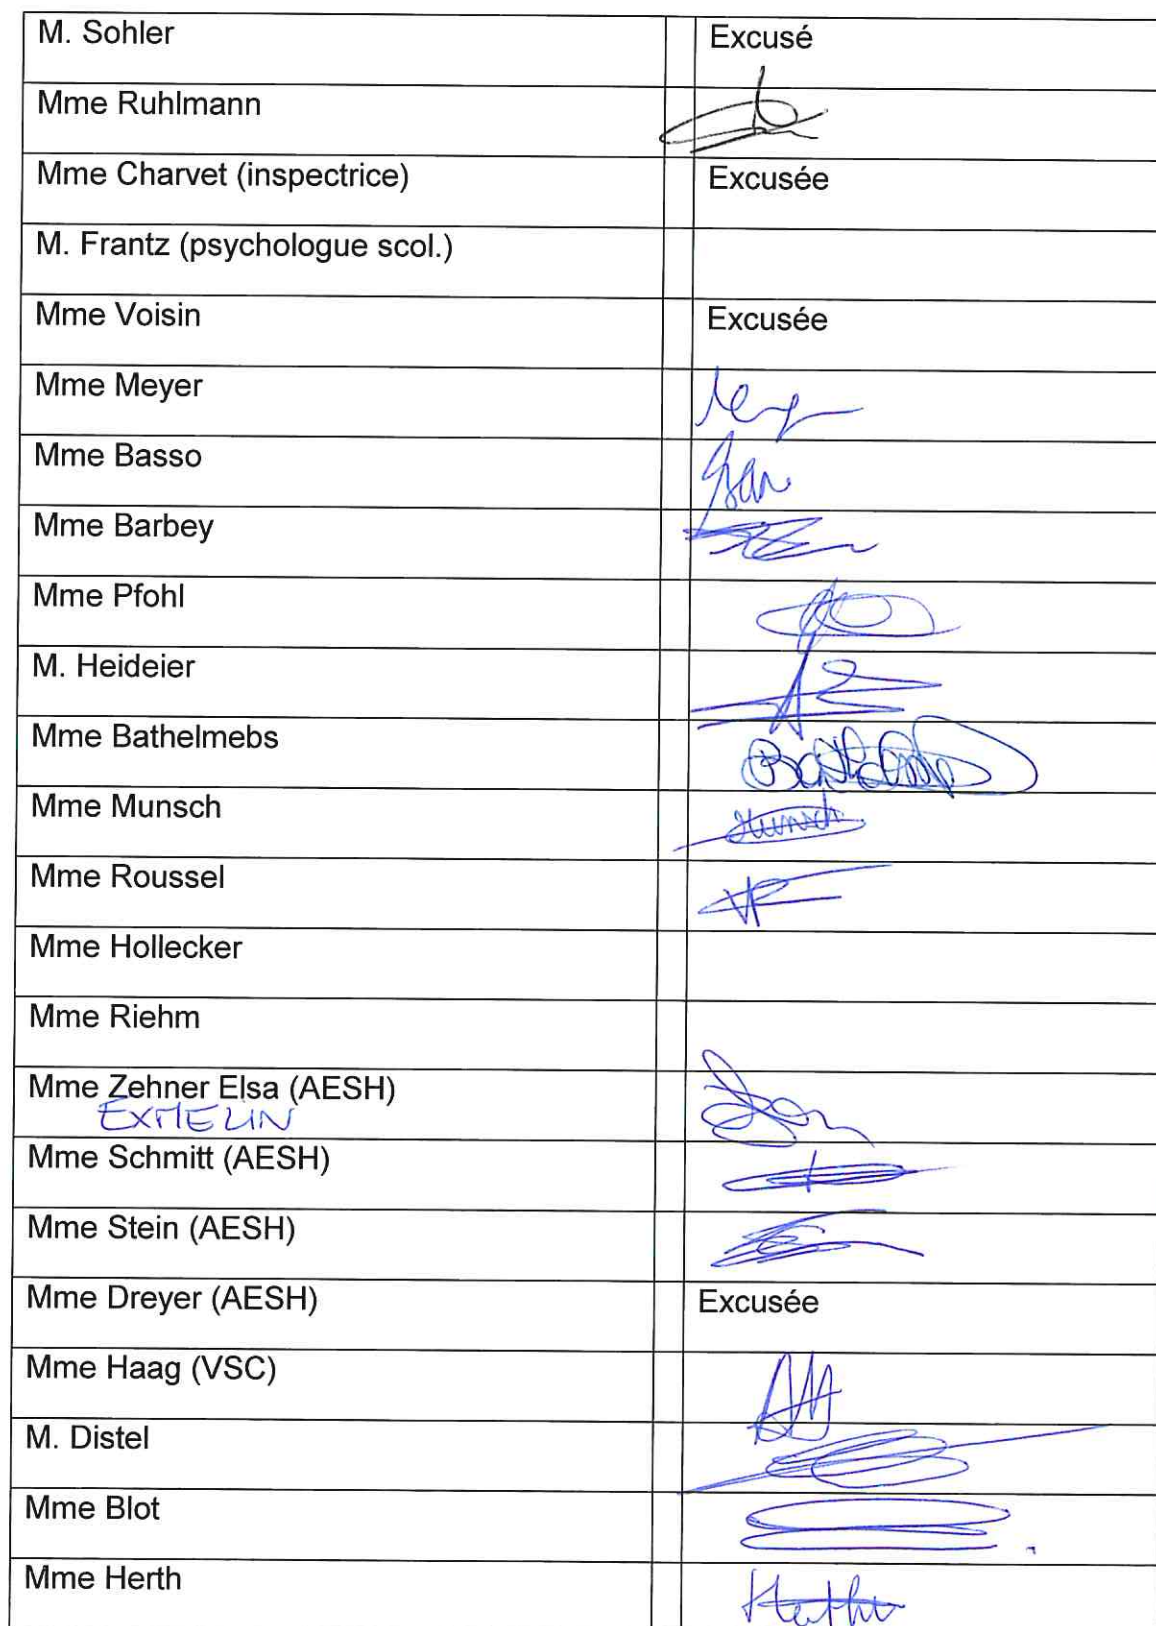 M. Sohler Excusé
Mme Ruhlmann
Mme Charvet (inspectrice) Excusée
M. Frantz (psychologue scol.)
Mme Voisin Excusée
Mme Meyer
Mme Basso
Mme Barbey
Mme Pfohl
M. Heideier
Mme Bathelmebs
Mme Munsch Munsch
Mme Roussel
Mme Hollecker
Mme Riehm
Mme Zehner Elsa (AESH)
EXMELIN
Mme Schmitt (AESH)
Mme Stein (AESH)
Mme Dreyer (AESH) Excusée
Mme Haag (VSC)
M. Distel
Mme Blot
Mme Herth